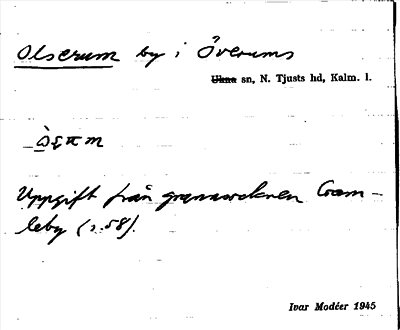 Olserum by i Överums
Ukna sn, N. Tjusts hd, Kalm. l.
Uppgift från grannsocknen
leby (s. 58).
Ivar Modéer 1945